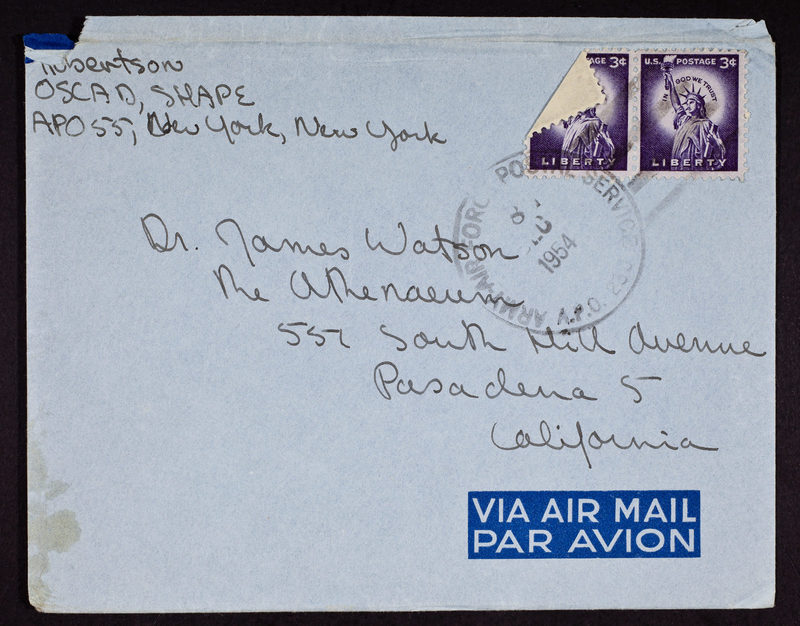 Robertson
OSCAD, SHAPE
APO 55, New York, New York
AGE 3¢
LIBERTY
U.S. POSTAGE 3¢
IN GOD WE TRUST
LIBERTY
ARMY-AIR FORC POSTAL SERVICE
1954
A.P.O.
Dr. James Watson
The Athenaeum
551 South Hill Avenue
Pasadena 5
California
VIA AIR MAIL
PAR AVION